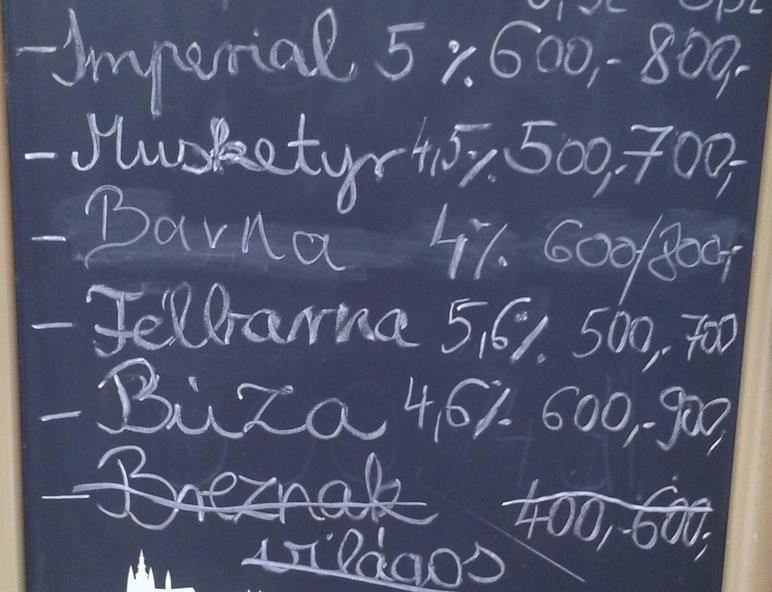 - Imperial 5 % 600,- 800,-
- Musketyr 4,5% 500,- 700,-
- Barna 4% 600/800,-
- Félbarna 5,6% 500,- 700
- Búza 4,6% 600,- 900,
- Breznak 400,- 600,-
világos